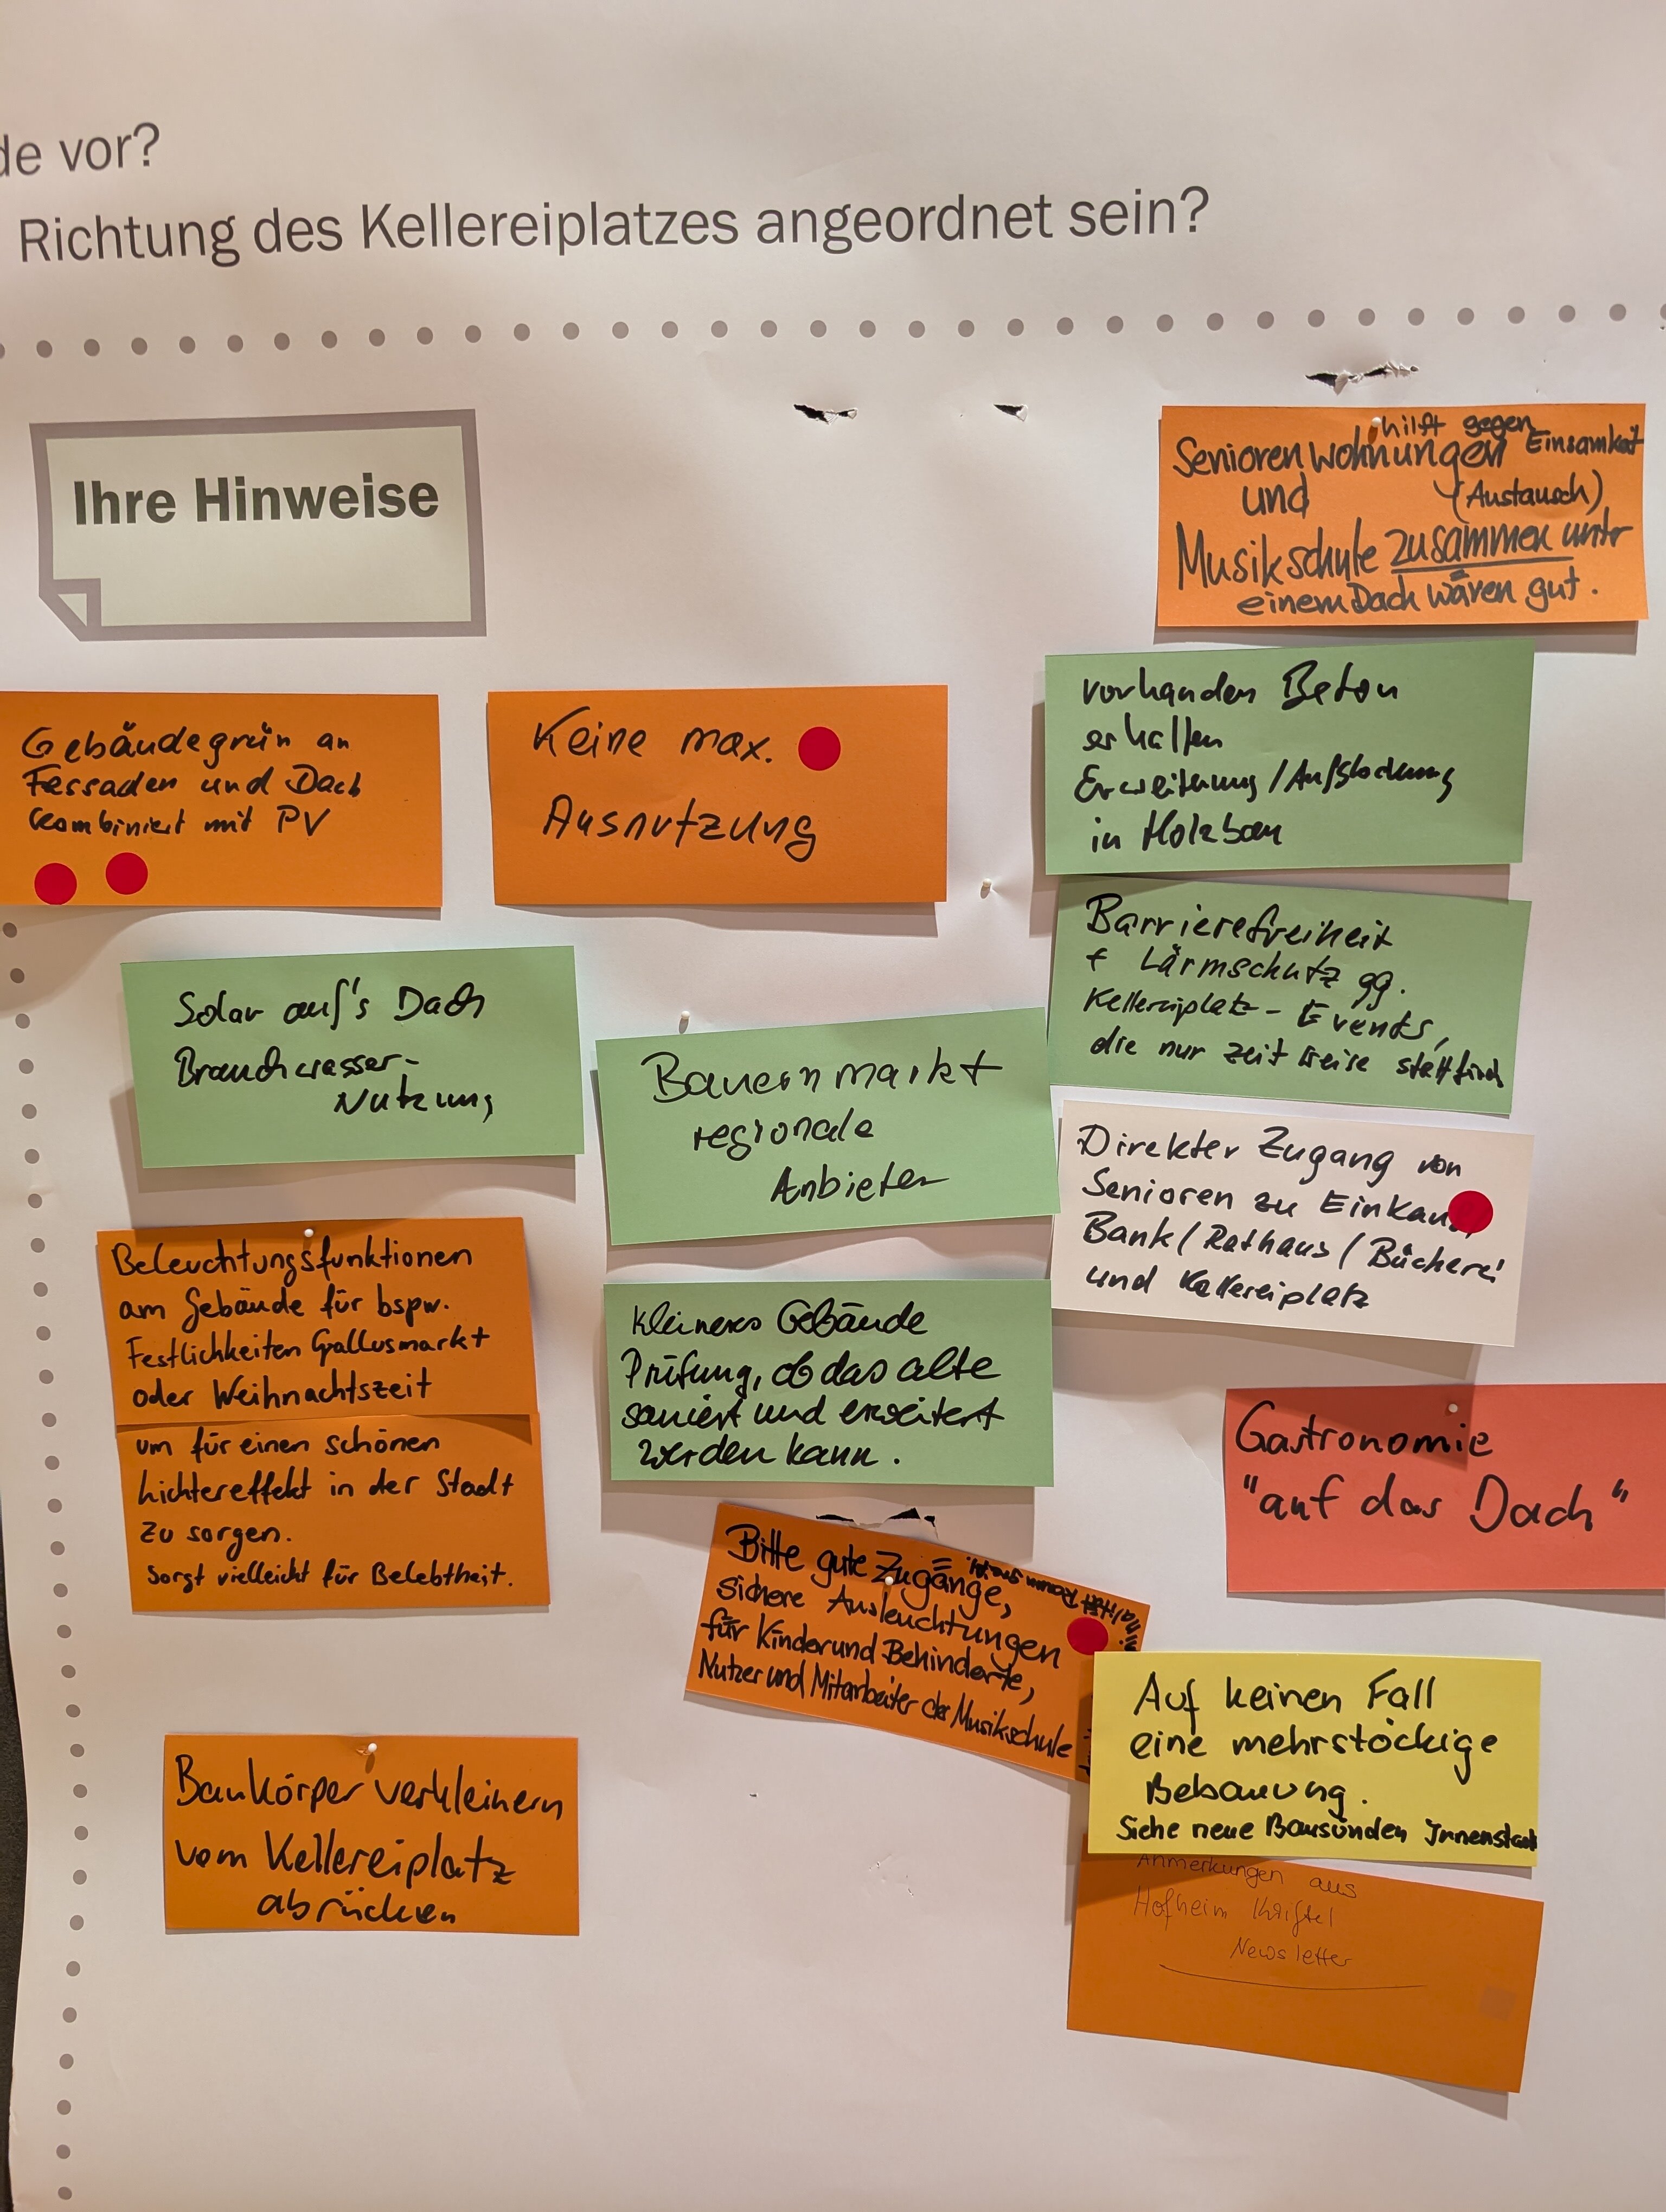 de vor?
Richtung des Kellereiplatzes angeordnet sein?
Ihre Hinweise
hilft gegen
Seniorenwohnungen Einsamkeit
und (Austausch)
Musikschule zusammen unter
einem Dach wären gut.
Gebäudegrün an
Fassaden und Dach
kombiniert mit PV
Keine max.
Ausnutzung
vorhanden Beton
erhalten
Erweiterung/Aufstockung
in Holzbau
Solar auf's Dach
Brauchwasser-
Nutzung
Bauernmarkt
regionale
Anbieter
Barrierefreiheit
+ Lärmschutz gg.
Kellereiplatz-Events,
die nur zeitweise stattfind
Direkter Zugang von
Senioren zu Einkauf,
Bank/Rathaus/Bücherei
und Kellereiplatz
Beleuchtungsfunktionen
am Gebäude für bspw.
Festlichkeiten Gallusmarkt
oder Weihnachtszeit
um für einen schönen
Lichtereffekt in der Stadt
zu sorgen.
Sorgt vielleicht für Belebtheit.
kleineres Gebäude
Prüfung, ob das alte
saniert und erweitert
werden kann.
Gastronomie
"auf das Dach"
Bitte gute Zugänge,
sichere Ausleuchtungen
für Kinder und Behinderte,
Nutzer und Mitarbeiter der Musikschule
Auf keinen Fall
eine mehrstöckige
Bebauung.
Siehe neue Bausünden Innenstadt
Baukörper verkleinern
vom Kellereiplatz
abrücken
Anmerkungen aus
Hofheim Kriftel
Newsletter